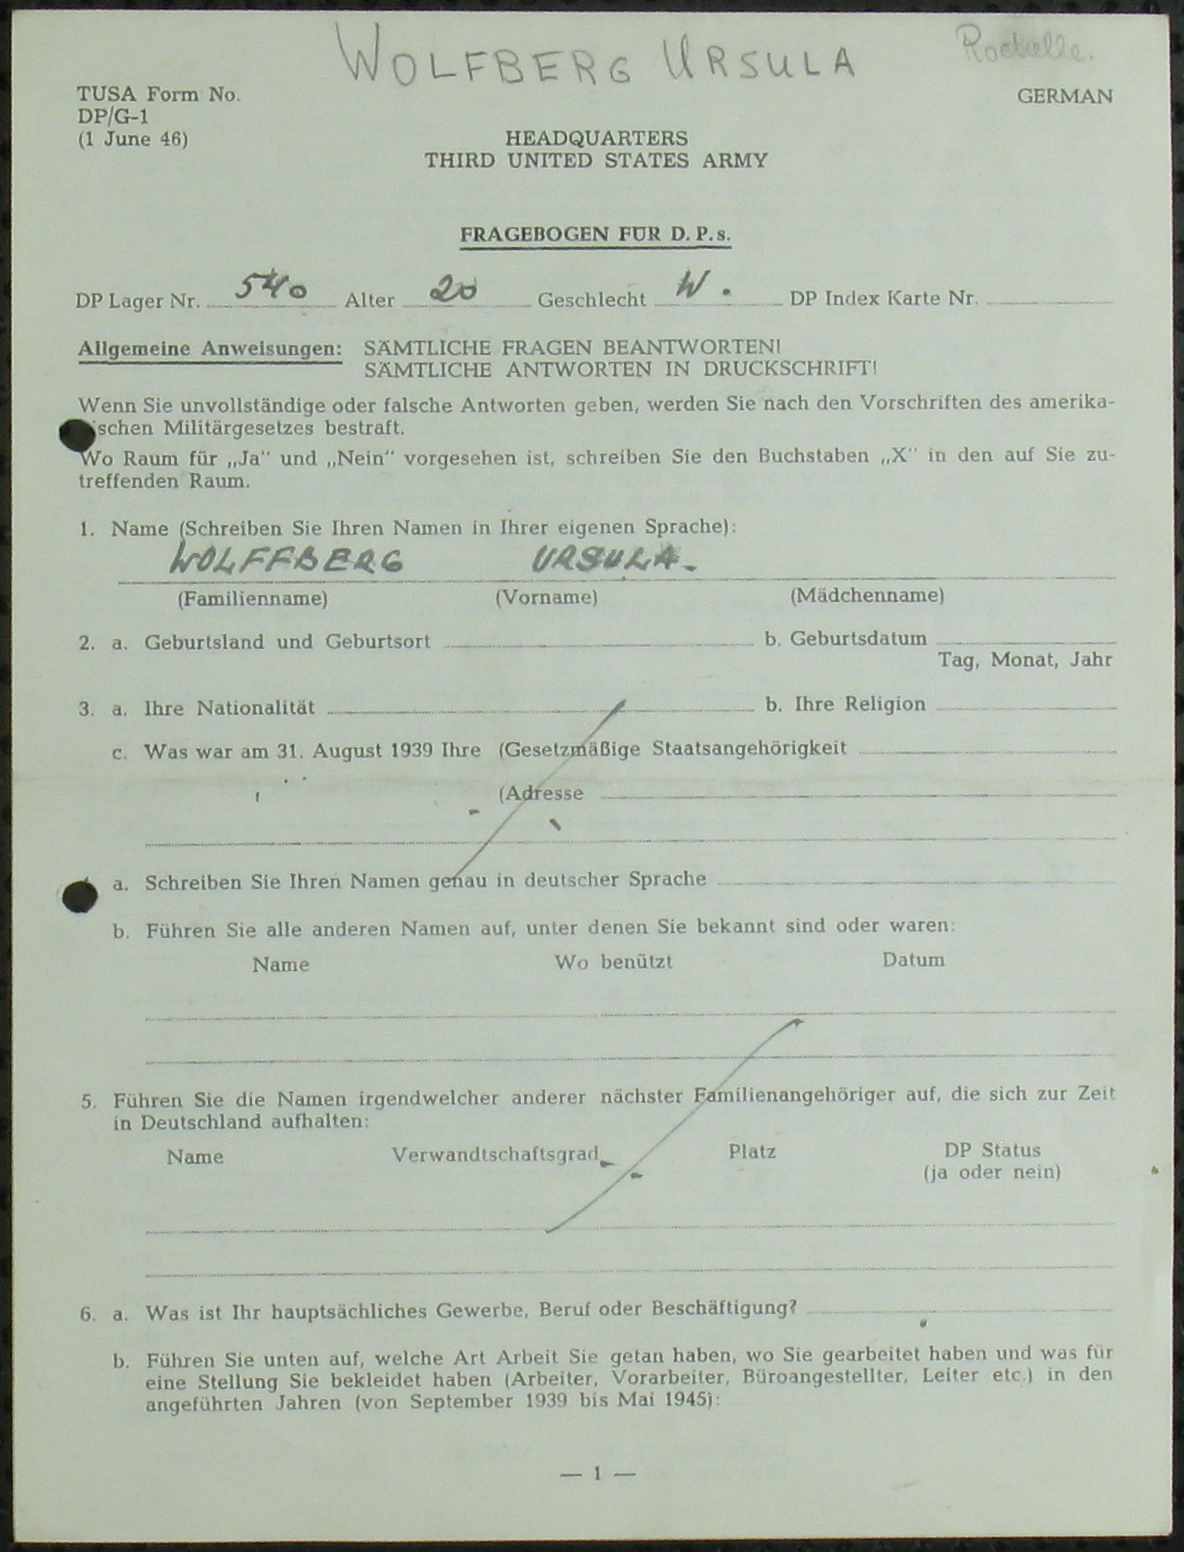 WOLFBERG URSULA
TUSA Form No.
DP/G-1
(1 June 46)
GERMAN
HEADQUARTERS
THIRD UNITED STATES ARMY
FRAGEBOGEN FÜR D.P.s.
DP Lager Nr. 540 Alter 20 Geschlecht W. DP Index Karte Nr.
Allgemeine Anweisungen: SÄMTLICHE FRAGEN BEANTWORTEN!
SÄMTLICHE ANTWORTEN IN DRUCKSCHRIFT!
Wenn Sie unvollständige oder falsche Antworten geben, werden Sie nach den Vorschriften des amerika-
ischen Militärgesetzes bestraft.
Wo Raum für „Ja" und „Nein" vorgesehen ist, schreiben Sie den Buchstaben „X" in den auf Sie zu-
treffenden Raum.
1. Name (Schreiben Sie Ihren Namen in Ihrer eigenen Sprache):
WOLFFBERG URSULA.
(Familienname) (Vorname) (Mädchenname)
2. a. Geburtsland und Geburtsort b. Geburtsdatum
Tag, Monat, Jahr
3. a. Ihre Nationalität b. Ihre Religion
c. Was war am 31. August 1939 Ihre (Gesetzmäßige Staatsangehörigkeit
(Adresse
a. Schreiben Sie Ihren Namen genau in deutscher Sprache
b. Führen Sie alle anderen Namen auf, unter denen Sie bekannt sind oder waren:
Name Wo benützt Datum
5. Führen Sie die Namen irgendwelcher anderer nächster Familienangehöriger auf, die sich zur Zeit
in Deutschland aufhalten:
Name Verwandtschaftsgrad Platz DP Status
(ja oder nein)
6. a. Was ist Ihr hauptsächliches Gewerbe, Beruf oder Beschäftigung?
b. Führen Sie unten auf, welche Art Arbeit Sie getan haben, wo Sie gearbeitet haben und was für
eine Stellung Sie bekleidet haben (Arbeiter, Vorarbeiter, Büroangestellter, Leiter etc.) in den
angeführten Jahren (von September 1939 bis Mai 1945):
— 1 —